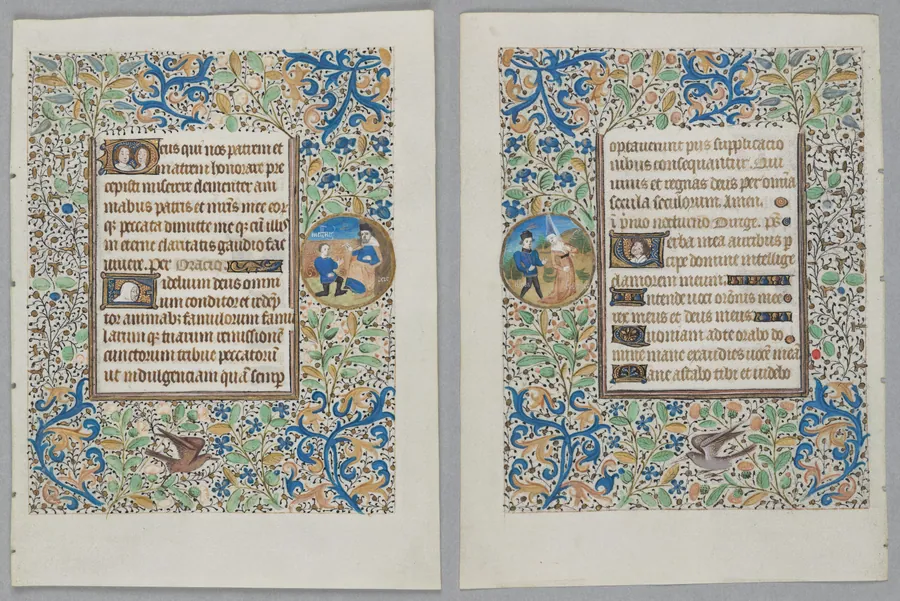 Deus qui nos patrem et
matrem honorare pre
cepisti miserere clementer ani
mabus patris et mr̃is mee eoꝝ
qꝫ peccata dimitte me qꝫ cũ illis
in eterne claritatis gaudio fac
vivere. Per Oracio
Fidelium deus omni
um conditor et redẽp
tor animabꝫ famulorum famu
larum qꝫ tuarum remissionẽ
cunctorum tribue peccatorũ
ut indulgenciam quã semp
optaverunt piis supplicacio
nibus consequantur. Qui
vivis et regnas deus per om̃ia
secula seculorum. Amen.
nocturno Dirige. p̃s
Verba mea auribus p
cipe domine intellige
clamorem meum.
Intende voci oracionis mee
rex meus et deus meus
Quoniam ad te orabo do
mine mane exaudies vocẽ meã
Mane astabo tibi et videbo